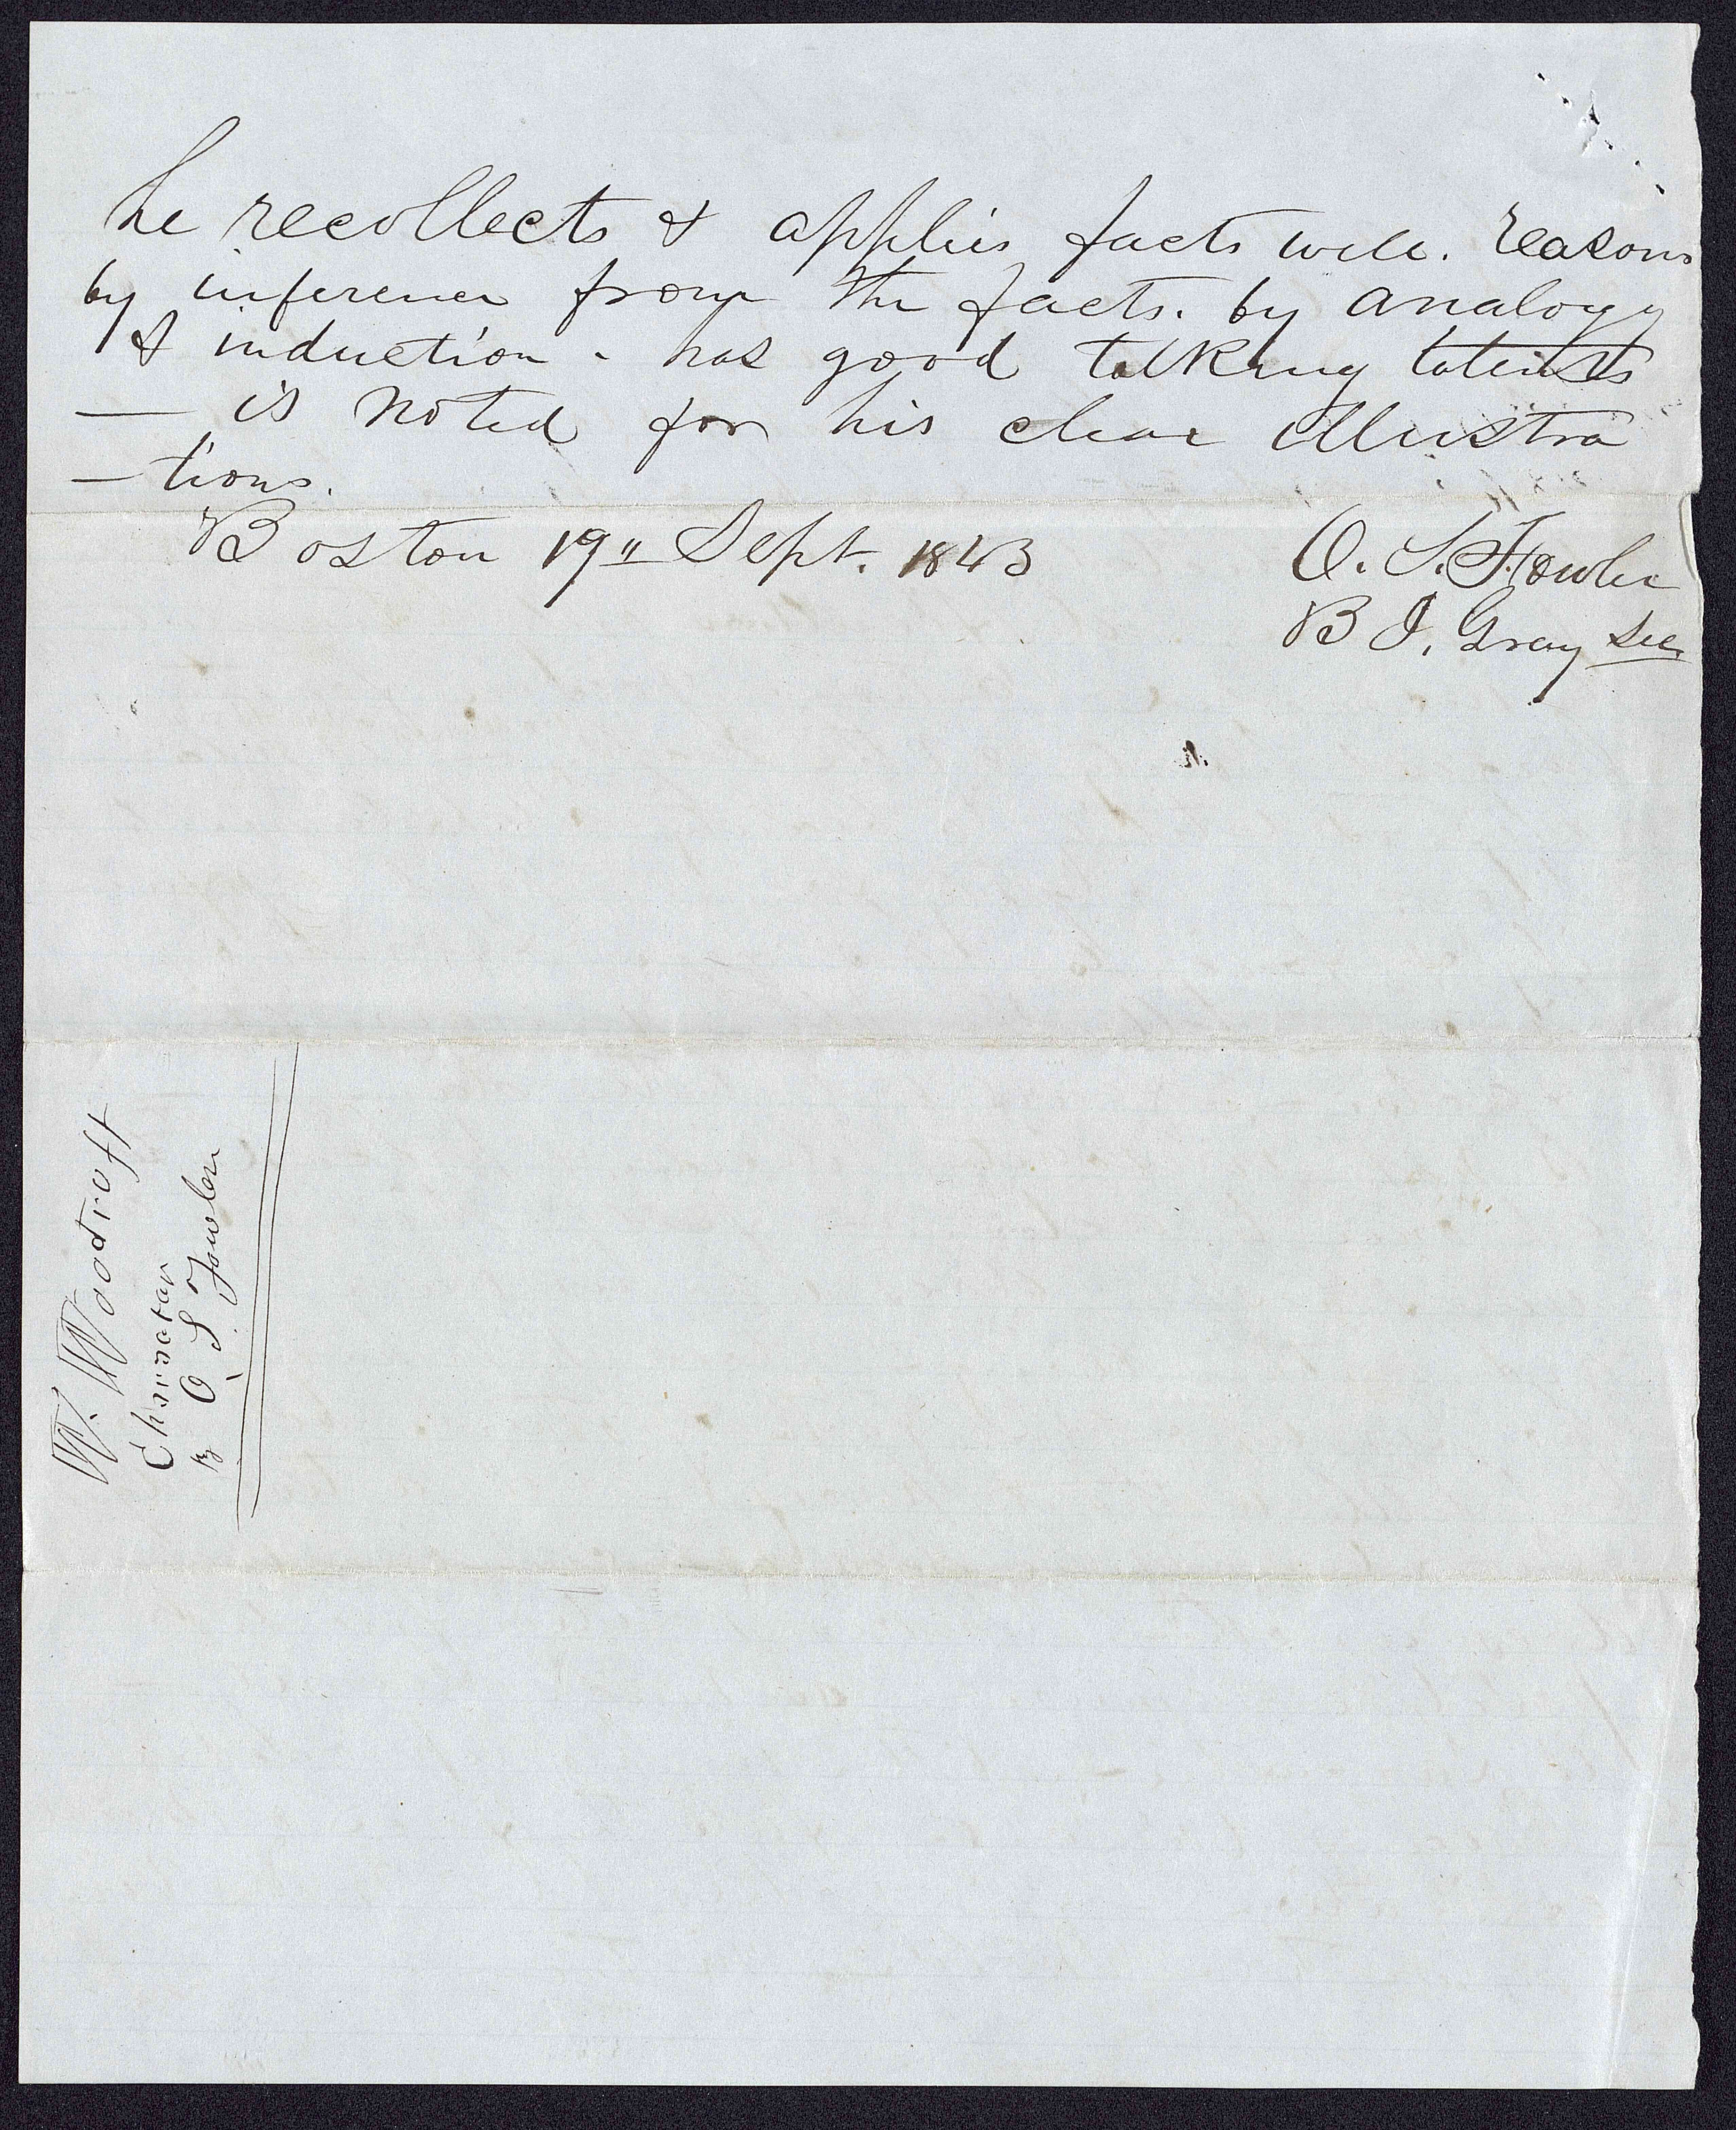 he recollects & applies facts well. reasons
by inference from the facts. by analogy
& induction - has good talking talents
— is noted for his clear illustra
— tions.
Boston 19" Sept. 1843
O. S. Fowler
B J. Gray Sec
W. Woodruff
Charratar
By O S Fowler